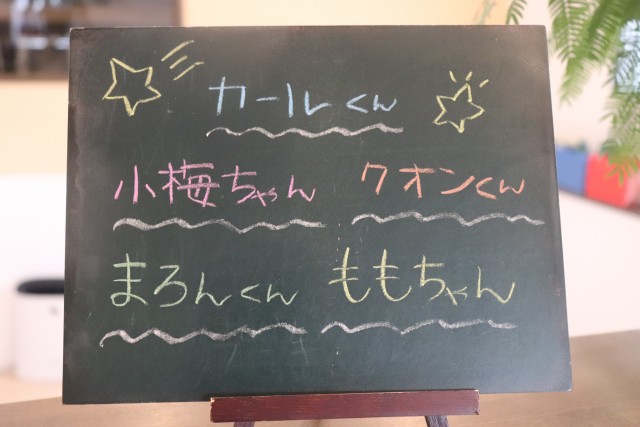 カールくん
小梅ちゃん クオンくん
まろんくん ももちゃん